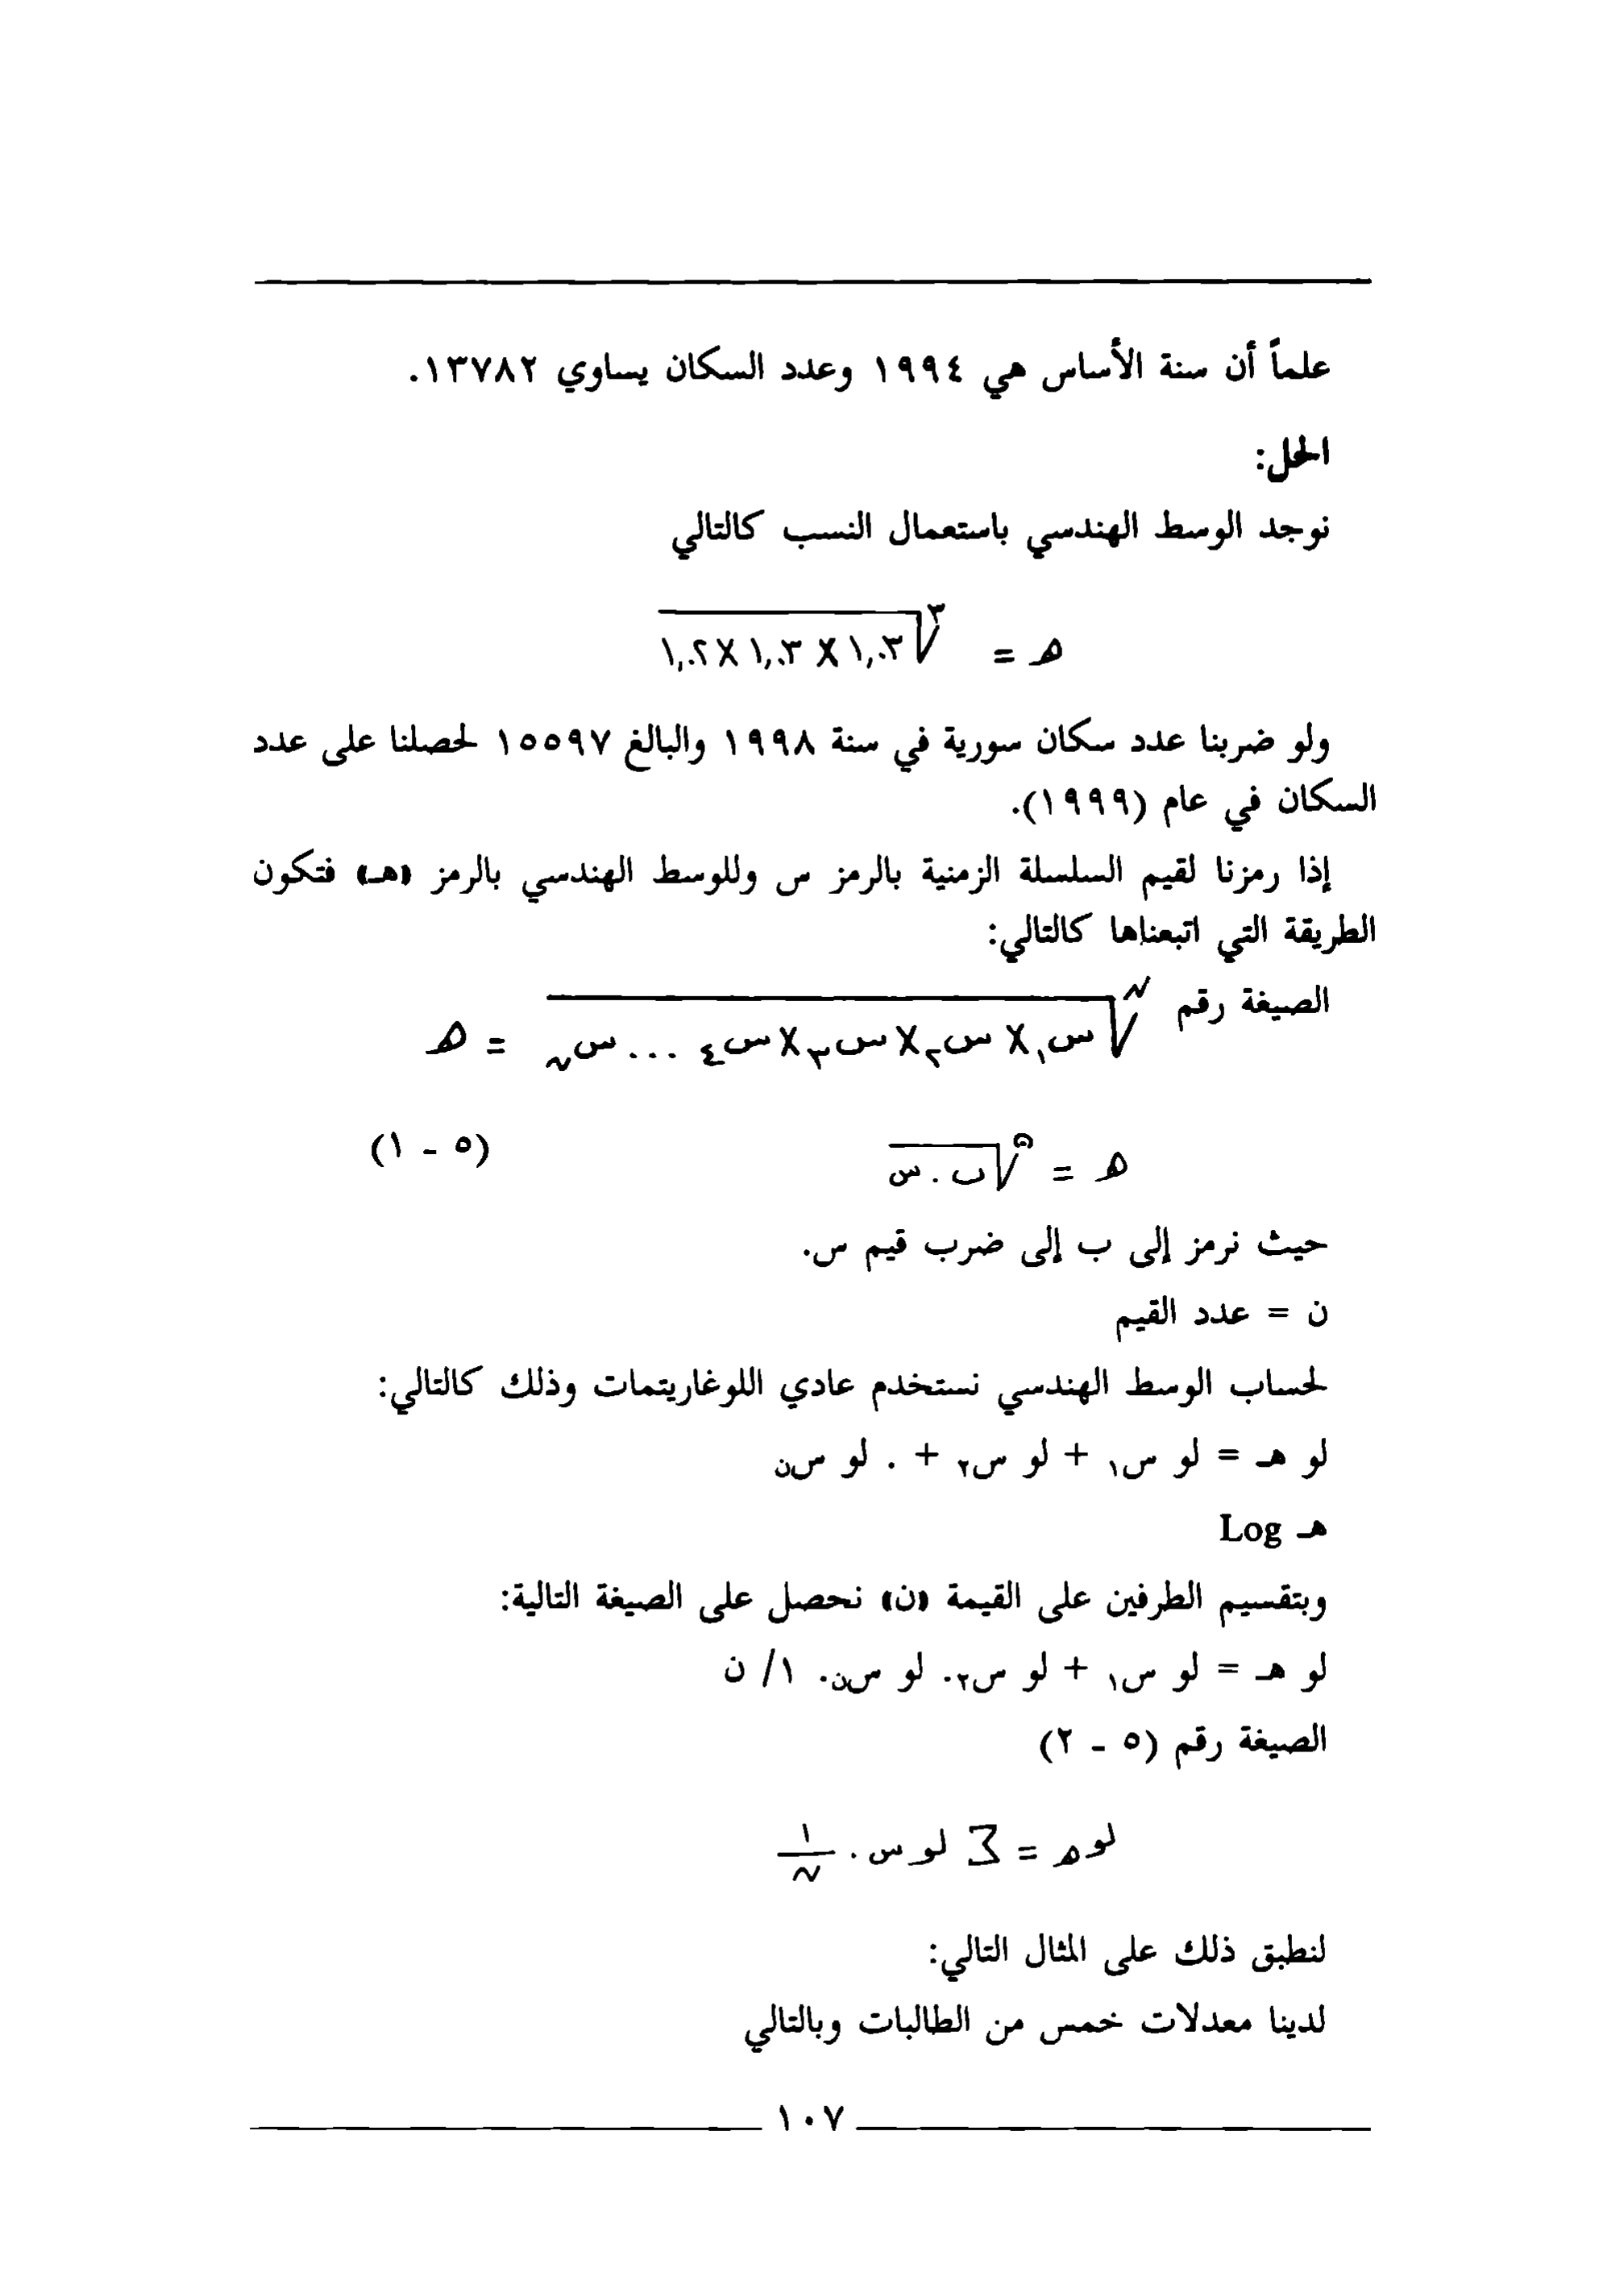 علماً أن سنة الأساس هي ١٩٩٤ وعدد السكان يساوي ١٣٧٨٢.
الحل:
نوجد الوسط الهندسي باستعمال النسب كالتالي
هـ = ٣√ ١,٠٣ × ١,٠٣ × ١,٠٢
ولو ضربنا عدد سكان سورية في سنة ١٩٩٨ والبالغ ١٥٥٩٧ لحصلنا على عدد
السكان في عام (١٩٩٩).
إذا رمزنا لقيم السلسلة الزمنية بالرمز س وللوسط الهندسي بالرمز «هـ» فتكون
الطريقة التي اتبعناها كالتالي:
الصيغة رقم ن√ س١ × س٢ × س٣ × س٤ ... سن = هـ
هـ = ن√ ب . س (٥ - ١)
حيث نرمز إلى ب إلى ضرب قيم س.
ن = عدد القيم
لحساب الوسط الهندسي نستخدم عادي اللوغاريتمات وذلك كالتالي:
لو هـ = لو س١ + لو س٢ + . لو سن
هـ Log
وبتقسيم الطرفين على القيمة «ن» نحصل على الصيغة التالية:
لو هـ = لو س١ + لو س٢. لو سن. ١/ ن
الصيغة رقم (٥ - ٢)
لو هـ = Σ لو س . ١/ن
لنطبق ذلك على المثال التالي:
لدينا معدلات خمس من الطالبات وبالتالي
١٠٧